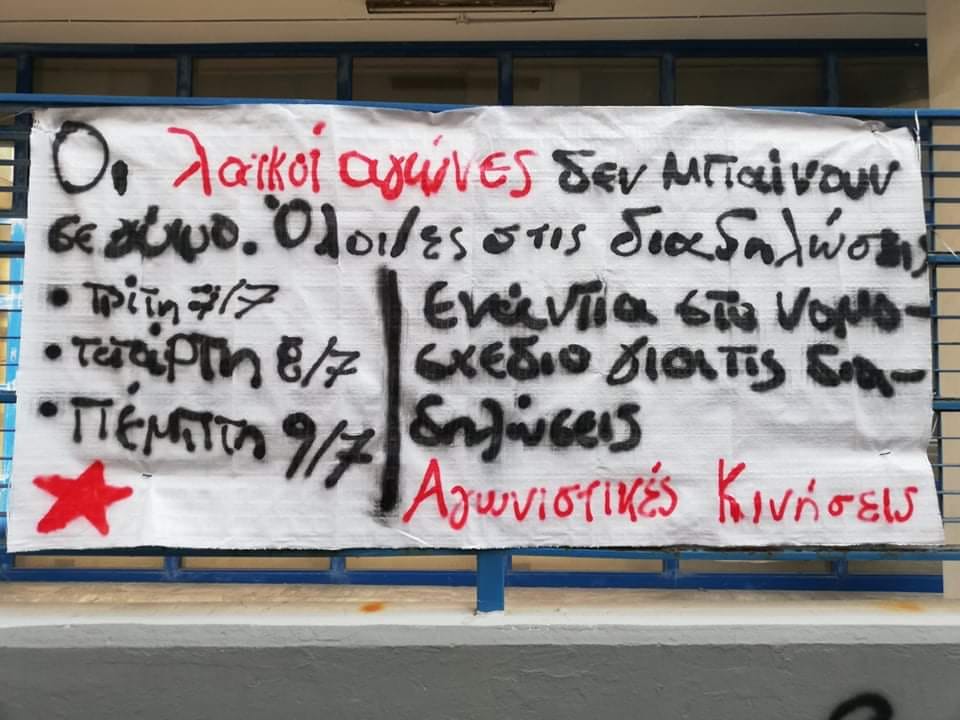 Οι λαϊκοί αγώνες δεν μπαίνουν
σε γύψο. Όλοι/ες στις διαδηλώσεις
• Τρίτη 7/7
• Τετάρτη 8/7
• Πέμπτη 9/7
Ενάντια στο νομο-
σχέδιο για τις δια-
δηλώσεις
Αγωνιστικές Κινήσεις